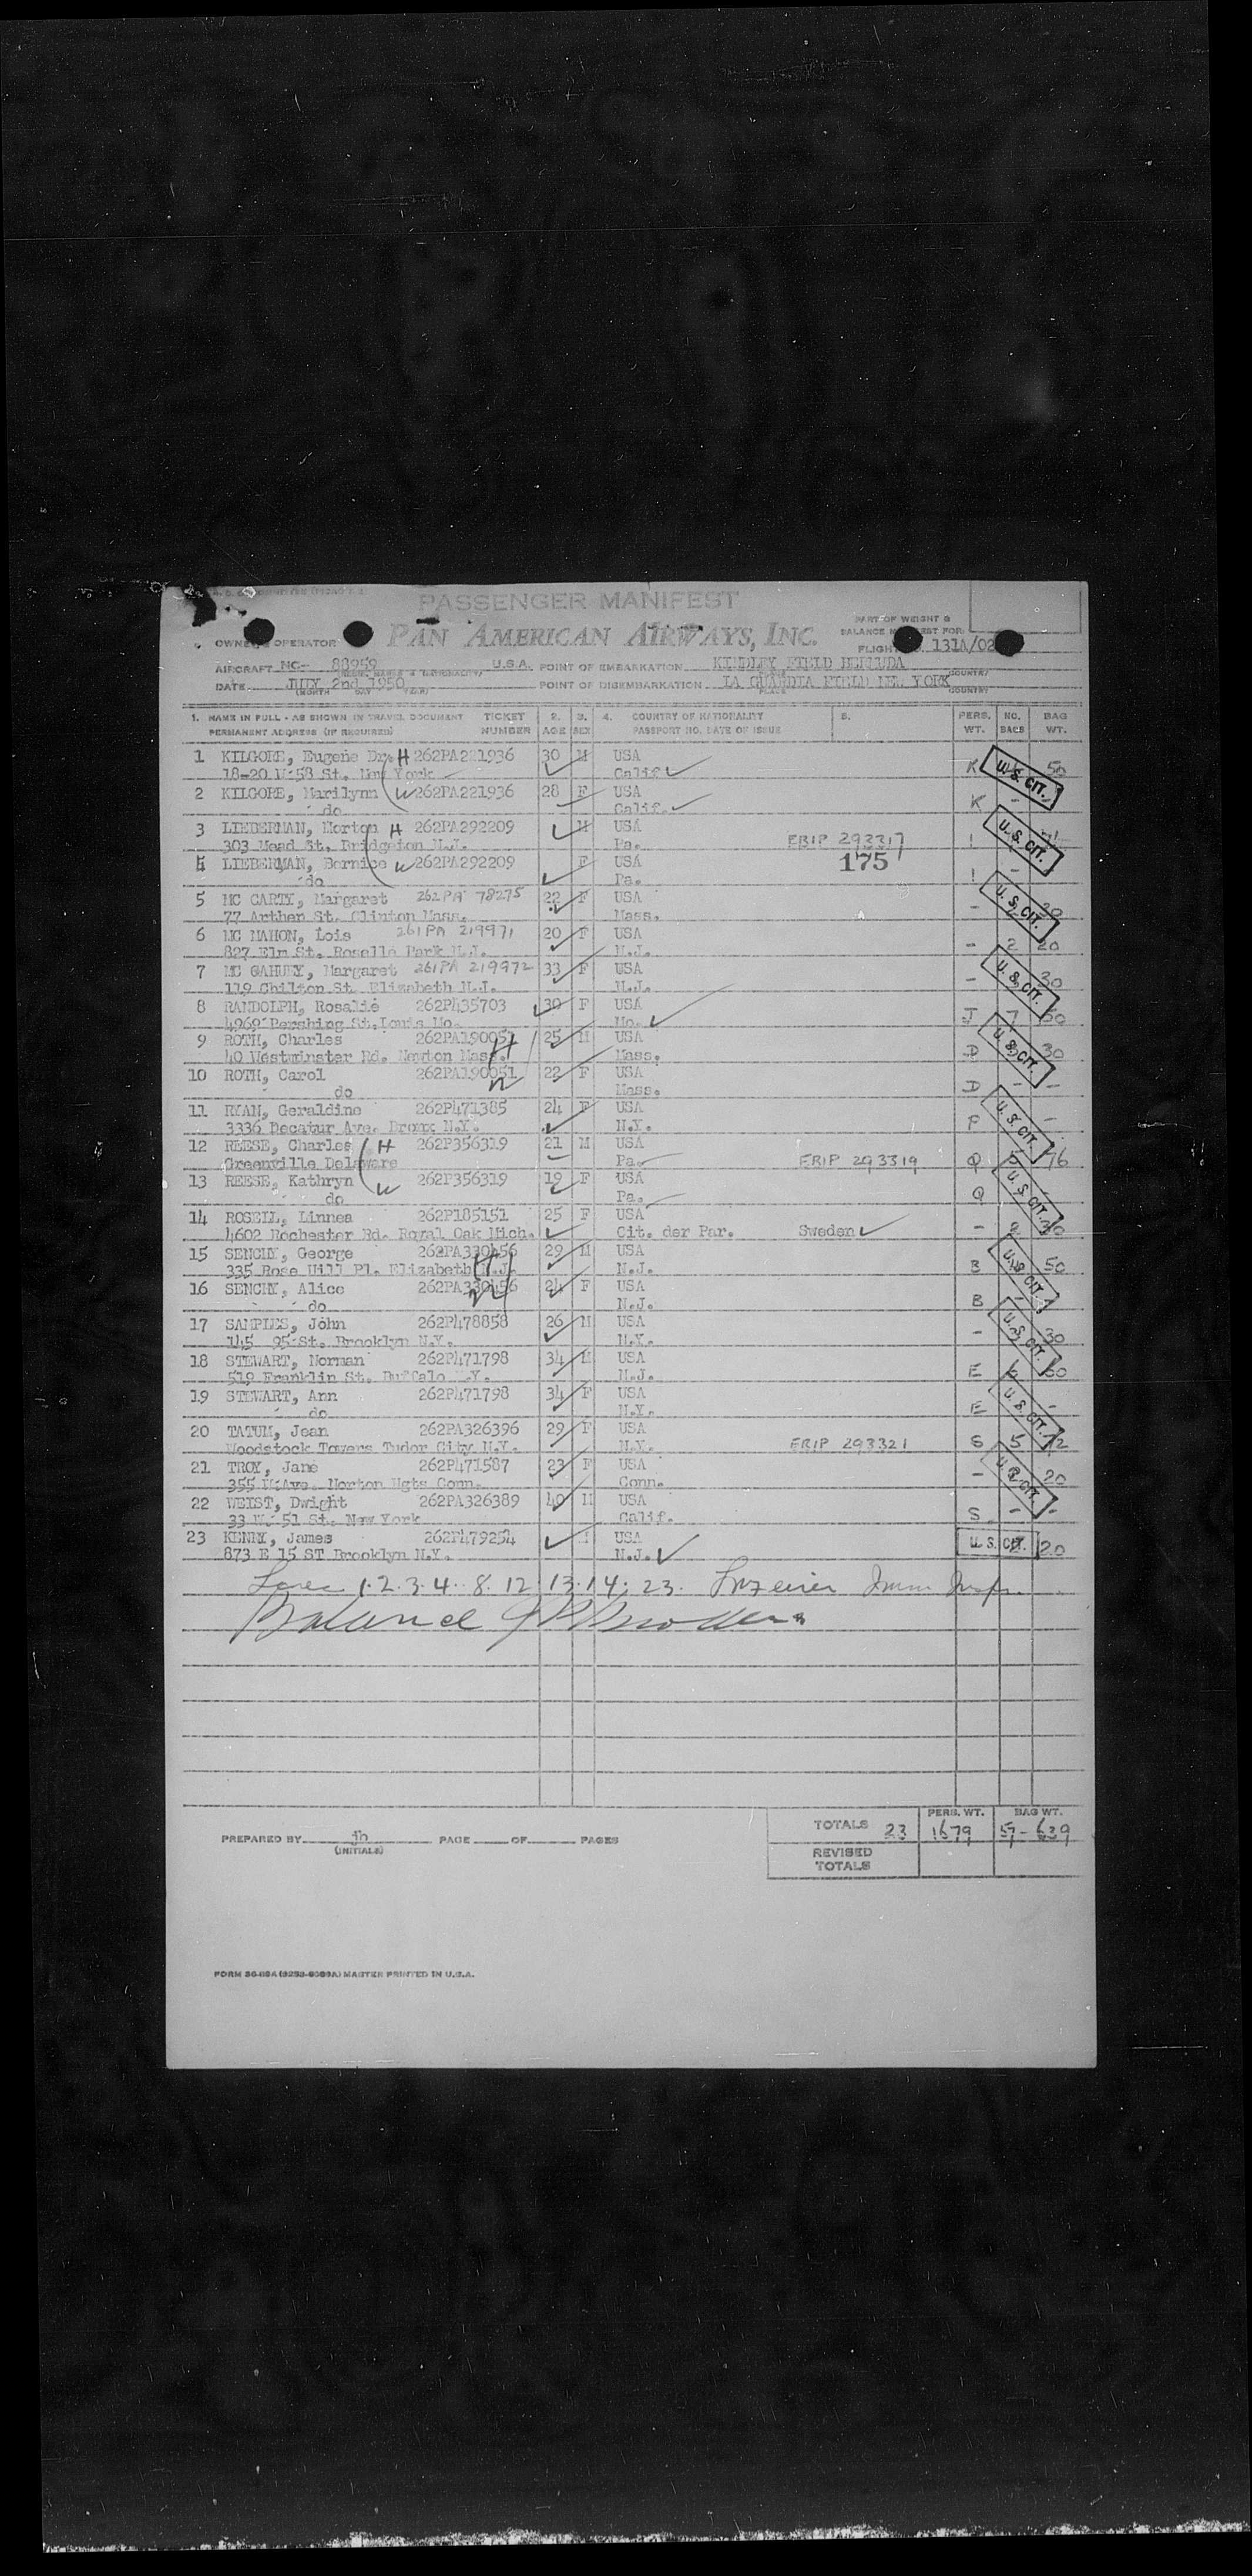 PASSENGER MANIFEST
OWNER OPERATOR PAN AMERICAN AIRWAYS, INC.
PART OF WEIGHT &
BALANCE FOR
FLIGHT 131A/02
AIRCRAFT NC- 88959 U.S.A. POINT OF EMBARKATION KINDLEY FIELD BERMUDA
DATE JULY 2nd 1950 POINT OF DISEMBARKATION LA GUARDIA FIELD NEW YORK
(MONTH DAY YEAR) PLACE COUNTRY
1. NAME IN FULL - AS SHOWN IN TRAVEL DOCUMENT TICKET 2. 3. 4. COUNTRY OF NATIONALITY 5. PERS. NO. BAG
PERMANENT ADDRESS (IF REQUIRED) NUMBER AGE SEX PASSPORT NO. DATE OF ISSUE WT. BAGS WT.
1 KILGORE, Eugene Dr. H 262PA221936 30 M USA
18-20 W 58 St. New York Calif. K U.S. CIT. 50
2 KILGORE, Marilynn W 262PA221936 28 F USA
do Calif. K -
3 LIEBERMAN, Morton H 262PA292209 M USA
303 Mead St. Bridgeton N.J. Pa. ERIP 293317 U.S. CIT.
4 LIEBERMAN, Bernice W 262PA292209 F USA 175
do Pa.
5 MC CARTY, Margaret 262PA 78275 22 F USA
77 Arthen St. Clinton Mass. Mass. - U.S. CIT. 30
6 MC MAHON, Lois 261PA 219971 20 F USA
827 Elm St. Roselle Park N.J. N.J. - 2 20
7 MC GAHUEY, Margaret 261PA 219972 33 F USA
119 Chilton St. Elizabeth N.J. N.J. - U.S. CIT. 30
8 RANDOLPH, Rosalie 262P435703 30 F USA
4969 Pershing St. Louis Mo. Mo. J 7
9 ROTH, Charles H 262PA190051 25 M USA
40 Westminster Rd. Newton Mass. Mass. D U.S. CIT. 30
10 ROTH, Carol W 262PA190051 22 F USA
do Mass. D - -
11 RYAN, Geraldine 262P471385 24 F USA
3336 Decatur Ave. Bronx N.Y. N.Y. P U.S. CIT. -
12 REESE, Charles H 262P356319 21 M USA
Greenville Delaware Pa. ERIP 293319 Q 76
13 REESE, Kathryn W 262P356319 19 F USA
do Pa. Q U.S. CIT.
14 ROSELL, Linnea 262P185151 25 F USA
4602 Rochester Rd. Royal Oak Mich. Cit. der Par. Sweden - 2
15 SENCHY, George H 262PA330456 29 M USA
335 Rose Hill Pl. Elizabeth N.J. N.J. B U.S. CIT. 50
16 SENCHY, Alice W 262PA330456 24 F USA
do N.J. B
17 SAMPLES, John 262P478858 26 M USA
145 95 St. Brooklyn N.Y. N.Y. - U.S. CIT. 30
18 STEWART, Norman 262P471798 34 M USA
519 Franklin St. Buffalo N.Y. N.J. E 6
19 STEWART, Ann 262P471798 34 F USA
do N.Y. E U.S. CIT. -
20 TATUM, Jean 262PA326396 29 F USA
Woodstock Towers Tudor City N.Y. N.Y. ERIP 293321 S 5
21 TROY, Jane 262P471587 23 F USA
355 W Ave. Norton Hgts Conn. Conn. - U.S. CIT. 20
22 WEIST, Dwight 262PA326389 40 M USA
33 W. 51 St. New York Calif. S - -
23 KENNY, James 262P479254 USA
873 E 15 ST Brooklyn N.Y. N.J. U.S. CIT. 20
1. 2. 3. 4. 8. 12 13. 14. 23. Imm Insp.
Balance
TOTALS 23 PERS. WT. 1679 BAG WT. 57-639
REVISED
TOTALS
PREPARED BY jb PAGE OF PAGES
(INITIALS)
MASTER PRINTED IN U.S.A.